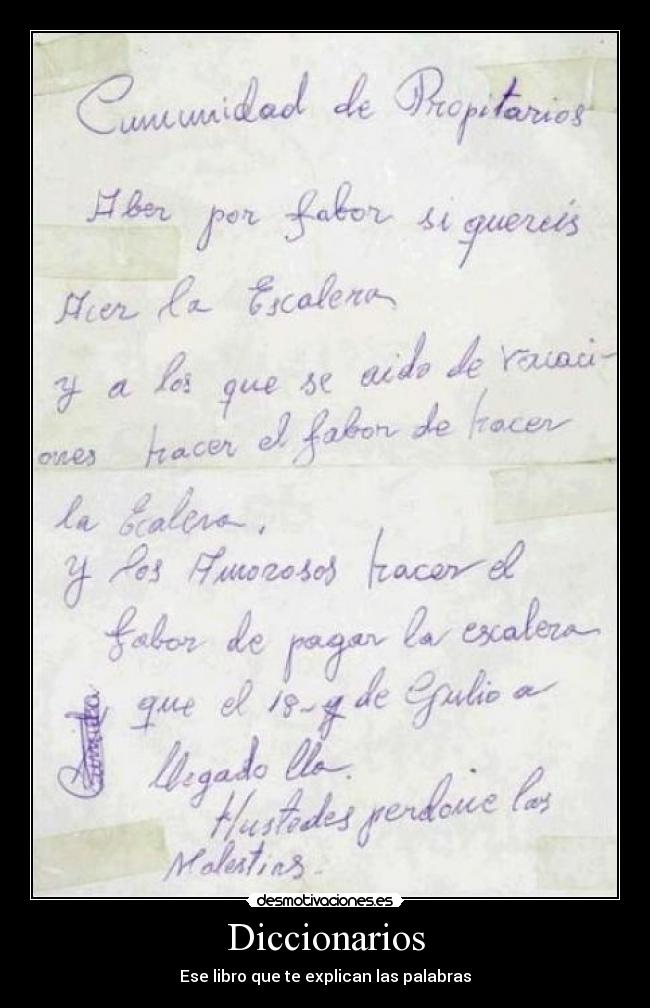 Cumunidad de Propitarios
Aber por fabor si quereis
Acer la Escalera
y a los que se aido de vacaci-
ones hacer el fabor de hacer
la Ecalera.
y los Amorosos hacer el
fabor de pagar la escalera
que el 18-y de Gulio a
llegado lla.
Hustedes perdone las
Molestias.
desmotivaciones.es
Diccionarios
Ese libro que te explican las palabras